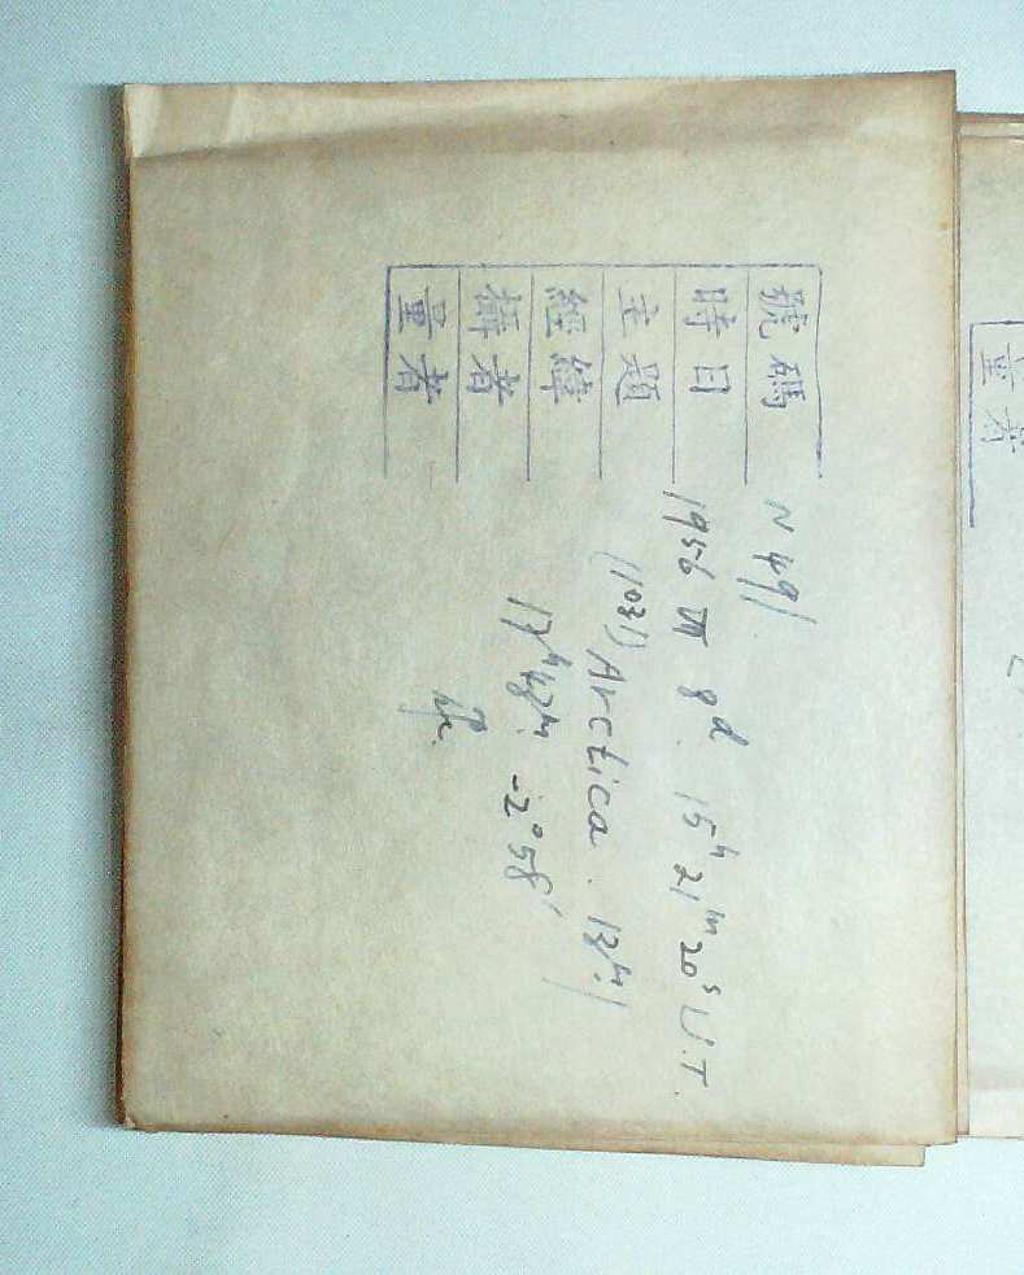 號碼 N 491
時日 1956 VII 8d. 15h 21m 20s U.T.
主題 (1031) Arctica. 13m.1
經緯 17h48m. -2°58′
攝者
量者
量者